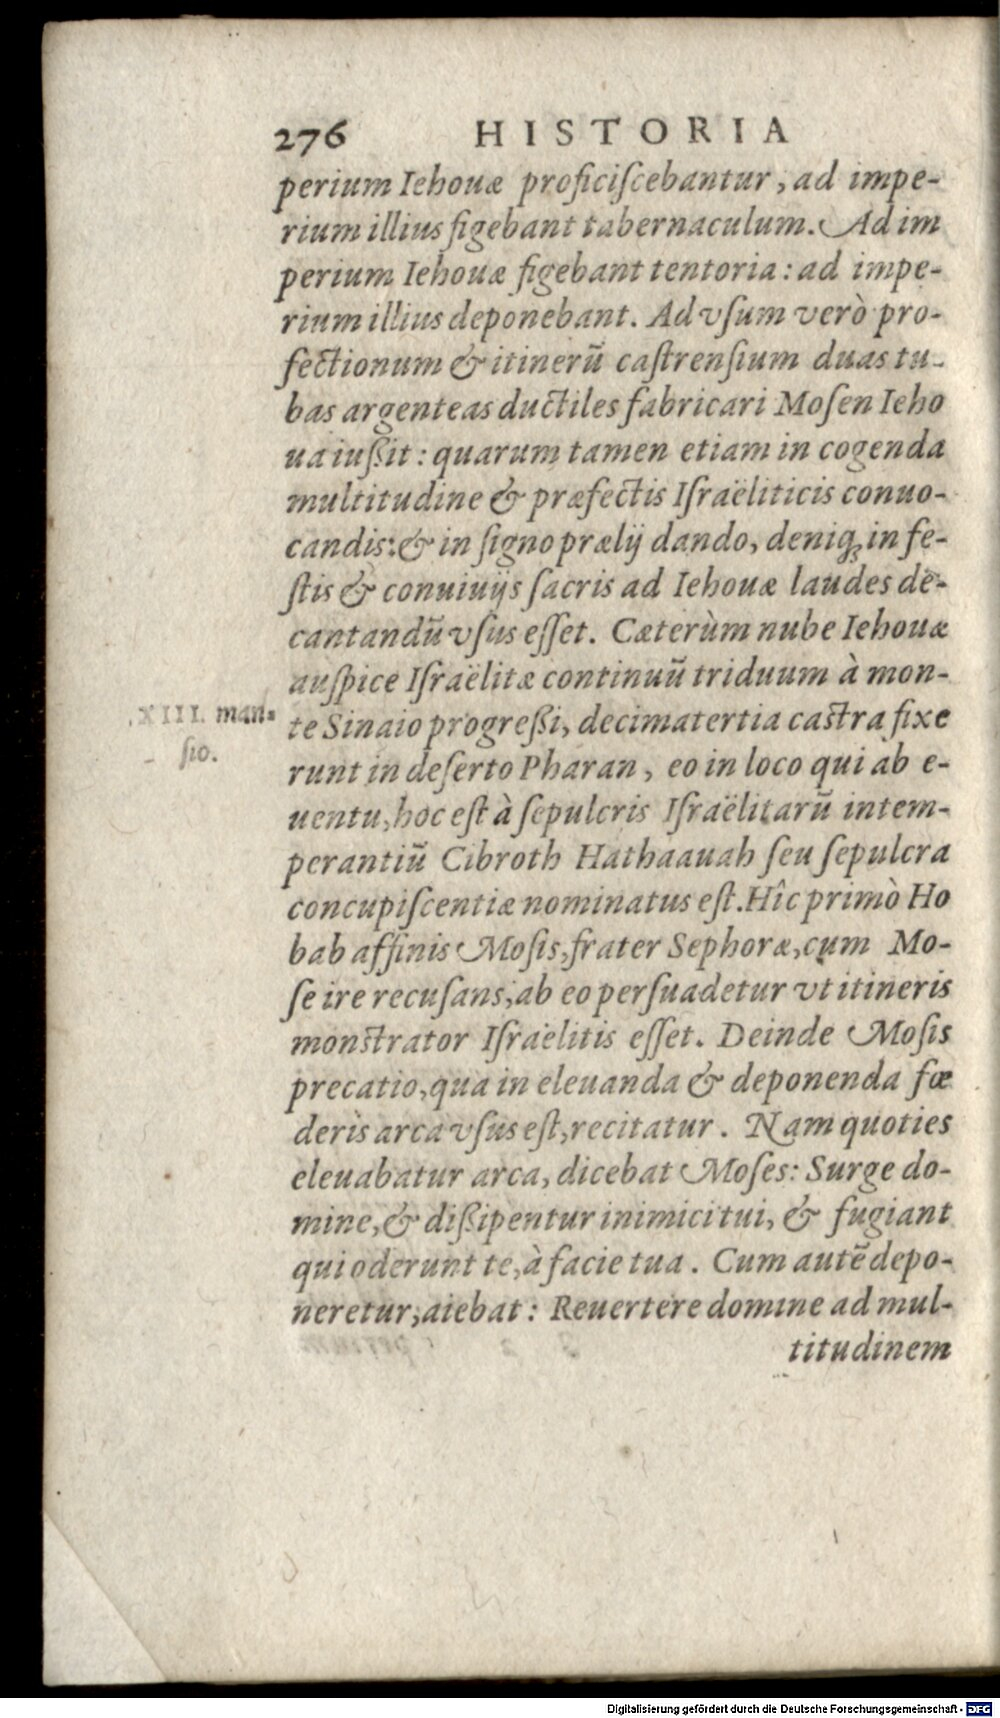 276 HISTORIA
perium Iehouæ proficiſcebantur, ad impe-
rium illius figebant tabernaculum. Ad im
perium Iehouæ figebant tentoria: ad impe-
rium illius deponebant. Ad vſum verò pro-
fectionum & itinerũ caſtrenſium duas tu-
bas argenteas ductiles fabricari Moſen Ieho
ua iußit: quarum tamen etiam in cogenda
multitudine & præfectis Iſraëliticis conuo-
candis: & in ſigno prælij dando, deniq; in fe-
ſtis & conuiuijs ſacris ad Iehouæ laudes de-
cantandũ vſus eſſet. Cæterùm nube Iehouæ
auſpice Iſraëlitæ continuũ triduum à mon-
XIII. man-
te Sinaio progreßi, decimatertia caſtra fixe
ſio.
runt in deſerto Pharan, eo in loco qui ab e-
uentu, hoc eſt à ſepulcris Iſraëlitarũ intem-
perantiũ Cibroth Hathaauah ſeu ſepulcra
concupiſcentiæ nominatus eſt. Hîc primò Ho
bab affinis Moſis, frater Sephoræ, cum Mo-
ſe ire recuſans, ab eo perſuadetur vt itineris
monſtrator Iſraëlitis eſſet. Deinde Moſis
precatio, qua in eleuanda & deponenda fœ
deris arca vſus eſt, recitatur. Nam quoties
eleuabatur arca, dicebat Moſes: Surge do-
mine, & dißipentur inimici tui, & fugiant
qui oderunt te, à facie tua. Cum autẽ depo-
neretur, aiebat: Reuertere domine ad mul-
titudinem
Digitalisierung gefördert durch die Deutsche Forschungsgemeinschaft - DFG